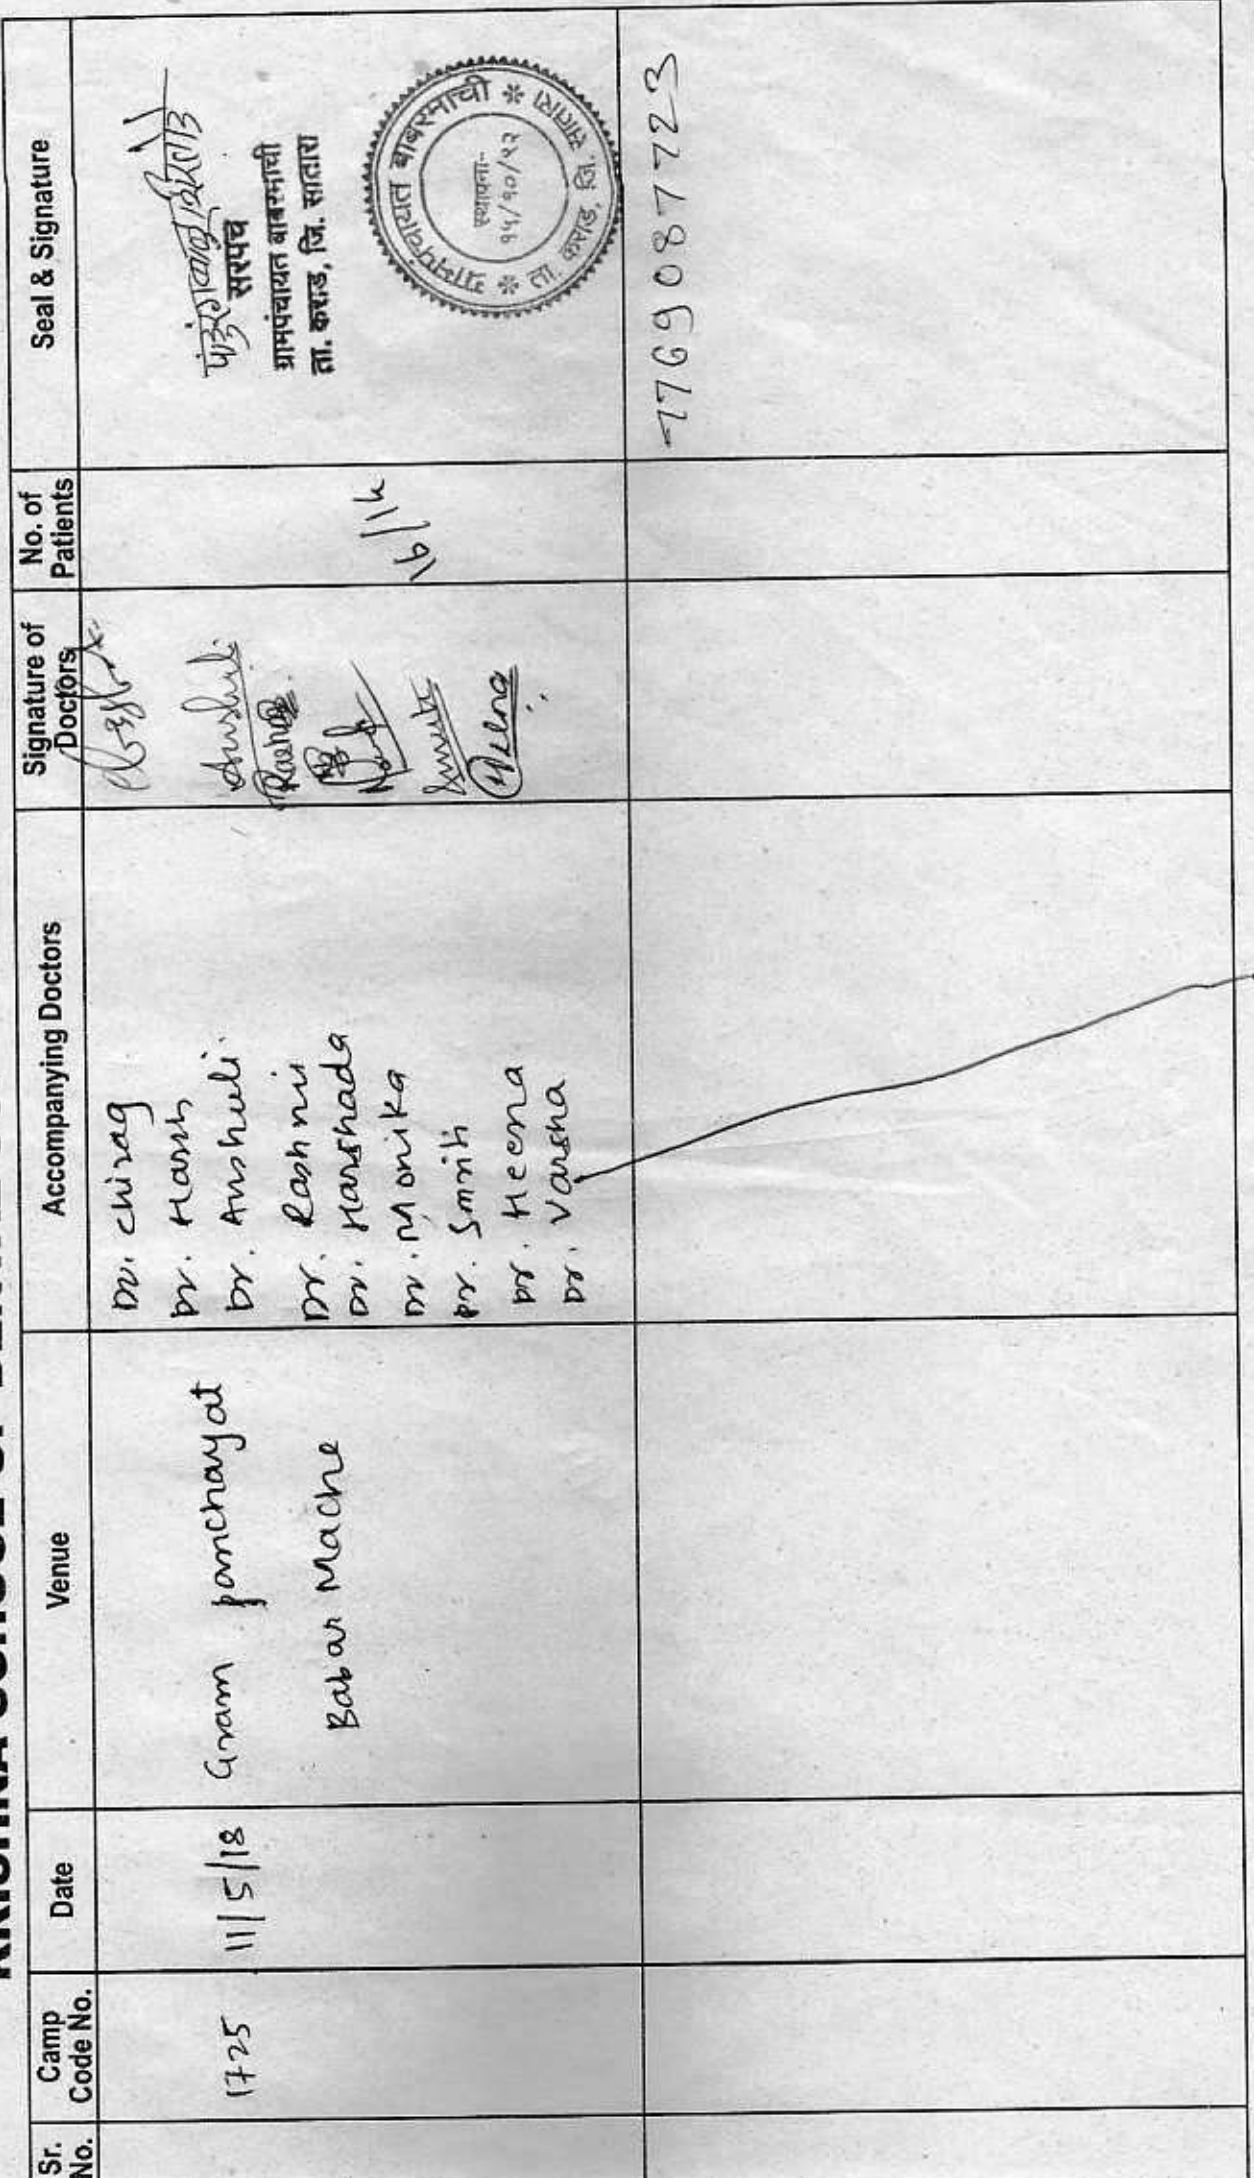 Sr. No.
Camp Code No.
Date
Venue
Accompanying Doctors
Signature of Doctors
No. of Patients
Seal & Signature
1725
11/5/18
Gram panchayat
Babar Mache
Dr. Chirag
Dr. Harsh
Dr. Anshuli.
Dr. Rashmi
Dr. Harshada
Dr. Monika
Dr. Smriti
Dr. Heena
Dr. Varsha
सरपंच
ग्रामपंचायत बाबरमाची
ता. कराड, जि. सातारा
ग्रामपंचायत बाबरमाची
स्थापना-
१५/१०/९२
ता. कराड, जि. सातारा
7769087723